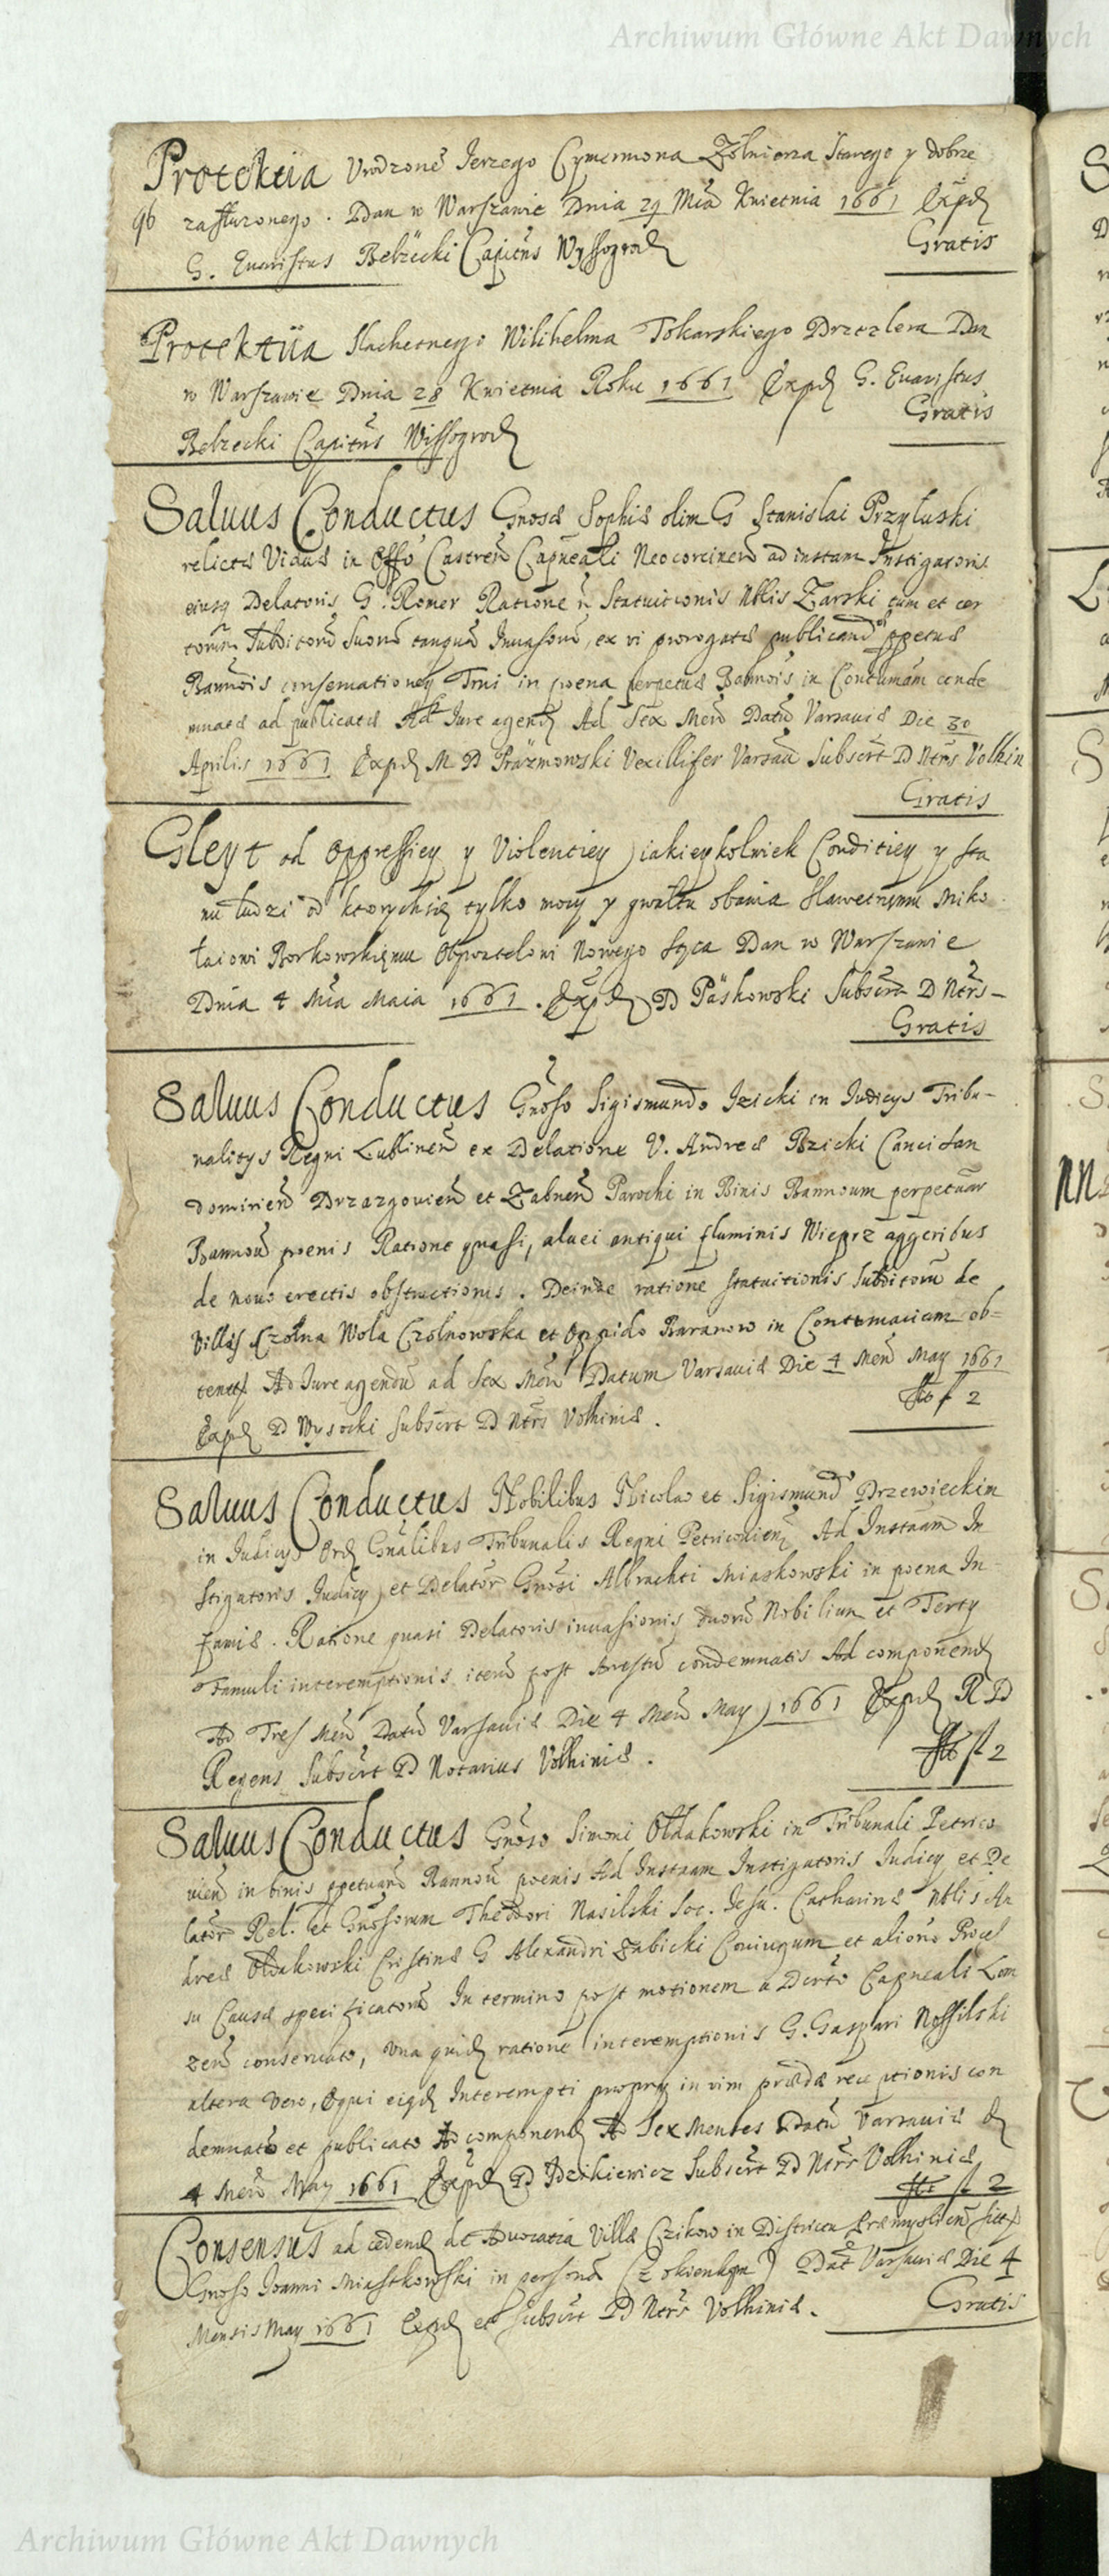 Archiwum Główne Akt Dawnych
Protekcia Vrodzoneᵒ Jerzego Cymermona Żołnierza starego y dobrze
96 zasłużonego. Dan w Warszawie Dnia 29 Mca Kwietnia 1661 Expd
Gratis
G. Euaristus Bełżecki Capitns Wyssogrod
Protektiia Slachetnego Wilihelma Tokarskiego Drzezlera Dan
w Warszawie Dnia 28 Kwietnia Roku 1661 Expd G. Euaristus
Gratis
Bełzecki Capitns Wissogrod
Saluus Conductus Gnosæ Sophiæ olim G Stanislai Przyłuski
relictæ Viduæ in Offo Castren Capneali Neocorcinen ad instam Instigatoris
eiusq Delatoris G. Romer Ratione n Statuitionis Nblis Żarski tum et cer
torum Subditoru suoru tanqua Inuasoru, ex vi prorogatæ publicand ppetuæ
Bannois conseruationeq Trni in poena peractæ Bannois in Contumam conde
mnatæ ad publicatæ Ad Iure agend Ad Sex Men Datu Varsauiæ Die 30
Aprilis 1661 Expd M D Prazmowski Vexillifer Varsau Subscrt D Ntrs Volhin
Gratis
Gleyt od Oppressiey y Violentiey iakieykolwiek Conditiey y sta
nu ludzi od ktorychsię tylko mocy y gwałtu obawia Sławetnemu Miko
łaiowi Borkowskiemu Obywatelowi Nowego Sącza Dan w Warszawie
Dnia 4 Mca Maia 1661. Expd D Paskowski Subscrt D Ntrs
Gratis
Saluus Conductus Gnoso Sigismundo Izicki in Iudicys Tribu-
nalitys Regni Lublinen ex Delatione V. Andreæ Bzicki Cancitan
dominien Drzazgouien et Zabnen Parochi in Binis Bannoum perpetuar
Bannou poenis Ratione quasi, aluei antiqui fluminis Wieprz aggeribus
de nouo erectis obstructionis. Deinde ratione statuitionis Subditoru de
Villis Czołna Wola Czolnowska et Oppido Baranow in Contumaciam ob=
tent Ad Iure agendu ad Sex Men Datum Varsauiæ Die 4 Men May 1661
f 2
Expd D Wysocki Subscrt D Ntrs Volhiniæ.
Saluus Conductus Nobilibus Nicolao et Sigismundo Drzewieckim
in Iudicys Ord Gnalibus Tribunalis Regni Petriconien Ad Instaam In
stigatoris Iudicy et Delator Gnosi Albrachti Miaskowski in poena In-
famiæ. Ratione quasi Delatoris inuasionis duoru Nobilium et Terty
Famuli interemptionis, iteru post Arestu condemnatis Ad componend
Ad Tres Men Datu Varsauiæ Die 4 Men May 1661 Expd R D
Regens Subscrt D Notarius Volhiniæ.
2
Saluus Conductus Gnoso Simoni Ołdakowski in Tribunali Petrico
uien in binis ppetuaru Bannou poenis Ad Instaam Instigatoris Iudicy et De
lator Rel. et Gnosorum Theodori Nasilski Soc. Iesu. Catharinæ Nblis An
dreæ Ołdakowski Cristinæ G Alexandri Zabicki Coniugum et alioru Proces
su Causæ specificatoru In termino post motionem a Dcrto Capneali Lom
zen conseruato, vna quid ratione interemptionis G. Gaspari Nossilski
altera vero, equi eisd Interempti propry in vim prædæ receptionis con
demnato et publicato Ad componend Ad Sex Menses Datu Varsauiæ d
4 Men May 1661 Expd D Idzikiewicz Subscrt D Ntrs Volhiniæ
2
Consensus ad cedend de Aduocatia Villæ Czikow in Districtu Præmyslien
Gnoso Ioanni Miastkowski in persona (z okienkam) Dat Varsauiæ Die 4
Mensis May 1661 Expd et Subscrt D Ntrs Volhiniæ.
Gratis
Archiwum Główne Akt Dawnych